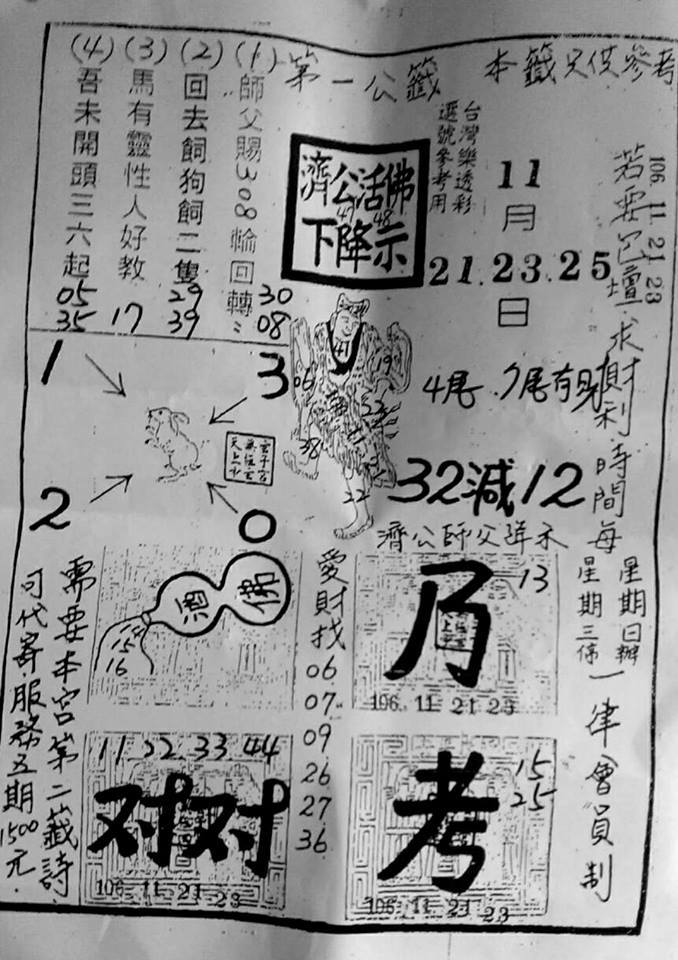 本籤只供參考
第一公籤
(1)師父賜308輪回轉
30
08
(2)回去飼狗飼二隻
29
39
(3)馬有靈性人好教
17
(4)吾未開頭三六起
05
35
濟公活佛
下降示
47
48
台灣樂透彩
選號參考用
11
月
21.23.25
日
106.11.21.23
若要包壇求財利時間每
星期日辦
星期三停
一律會員制
1
3
2
0
06
41
19
38
22
4尾
32減12
濟公師父降示
乃
13
106.11.21.23
考
15
25
106.11.21.23
愛財找
06
07
09
26
27
36
佛
酒
15
16
11 22 33 44
对对
106.11.21.23
需要本宮第二籤詩
可代寄.服務五期1500元.